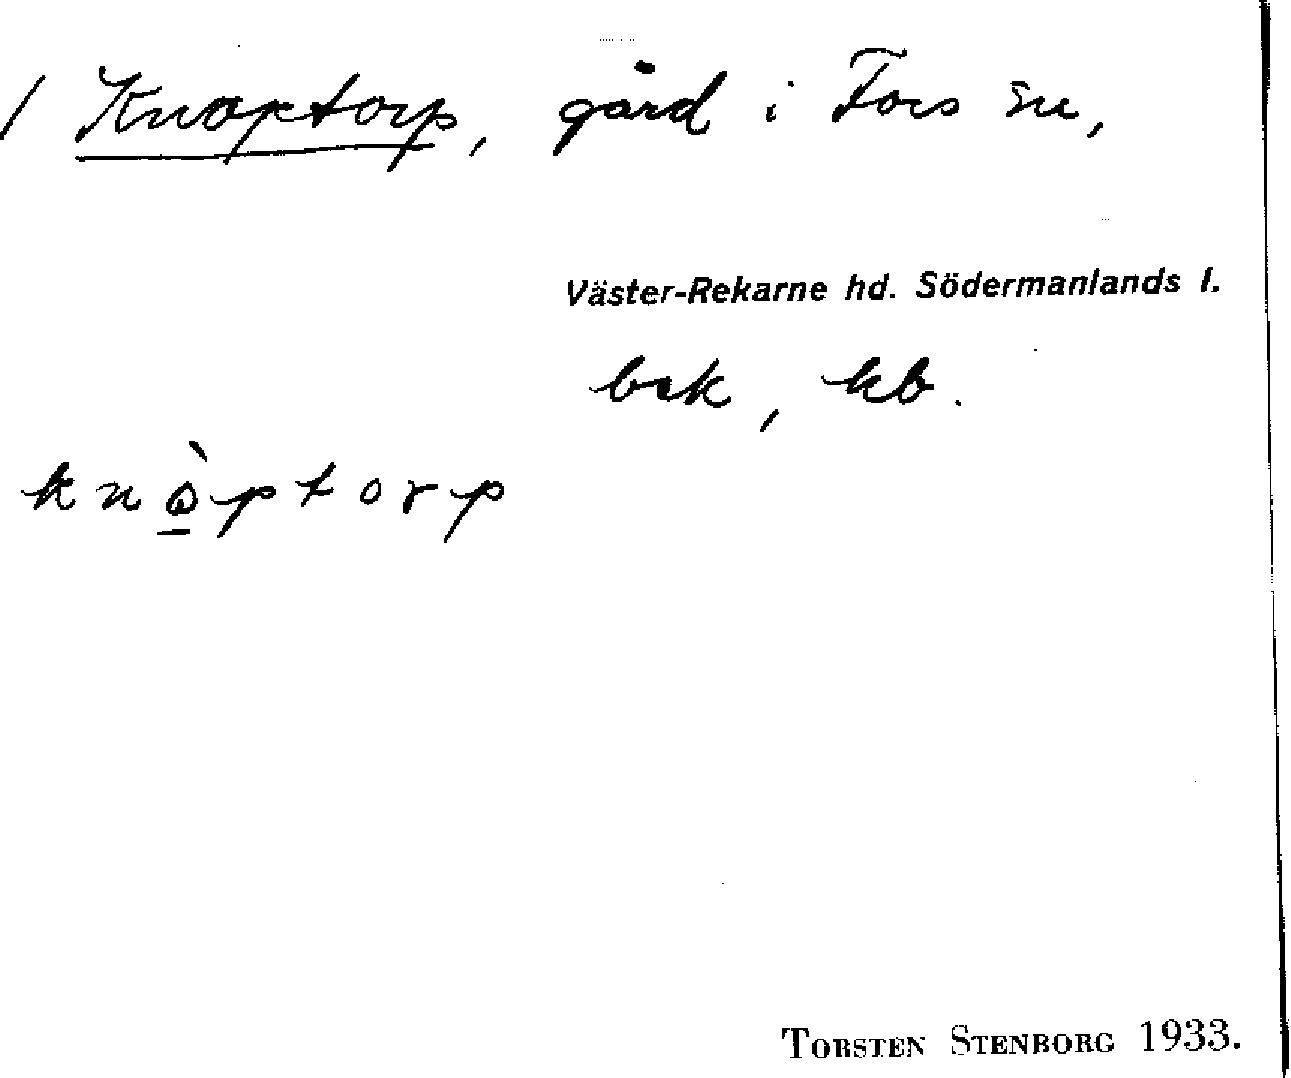 / Knoptorp, gård i Fors sn,
Väster-Rekarne hd. Södermanlands l.
bek, kb.
knòptorp
TORSTEN STENBORG 1933.